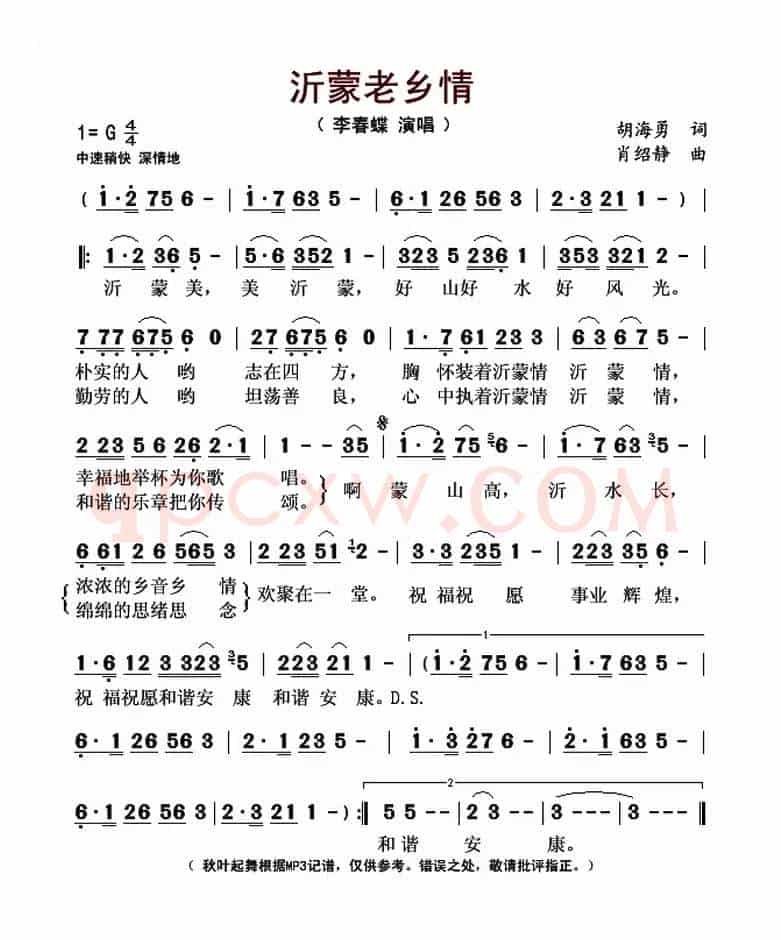 沂蒙老乡情
（ 李春蝶 演唱 ）
1= G 4/4
胡海勇 词
中速稍快 深情地
肖绍静 曲
( 1·2 75 6 - | 1·7 63 5 - | 6·1 26 56 3 | 2·3 21 1 - ) |
‖: 1·2 36 5 - | 5·6 352 1 - | 323 5 236 1 | 353 321 2 - |
沂 蒙 美， 美 沂 蒙， 好 山好 水 好 风 光。
7 77 675 6 0 | 27 675 6 0 | 1· 7 61 23 3 | 6 3 67 5 - |
朴实的人 哟 志在四 方， 胸 怀装着沂蒙情 沂 蒙 情，
勤劳的人 哟 坦荡善 良， 心 中执着沂蒙情 沂 蒙 情，
2 23 5 6 26 2·1 | 1 - - 35 | 1·2 75 6 - | 1·7 63 5 - |
幸福地举杯为你歌 唱。 啊 蒙 山 高， 沂 水 长，
和谐的乐章把你传 颂。
6 61 2 6 565 3 | 2 23 51 2 - | 3·3 235 1 - | 223 35 6 - |
浓浓的乡音乡 情 欢聚在一 堂。 祝 福祝 愿 事业 辉 煌，
绵绵的思绪思 念
1·6 12 3 323 5 | 223 21 1 - | (1·2 75 6 - | 1·7 63 5 - |
祝 福祝愿和谐安 康 和谐 安 康。D.S.
6·1 26 56 3 | 2·3 21 1 - | 1·3 27 6 - | 2·1 63 5 - |
6·1 26 56 3 | 2·3 21 1 - ):‖ 5 5 - - | 2 3 - - | 3 - - - | 3 - - - ‖
和 谐 安 康。
（ 秋叶起舞根据MP3记谱，仅供参考。错误之处，敬请批评指正。）
qpcxw.COM